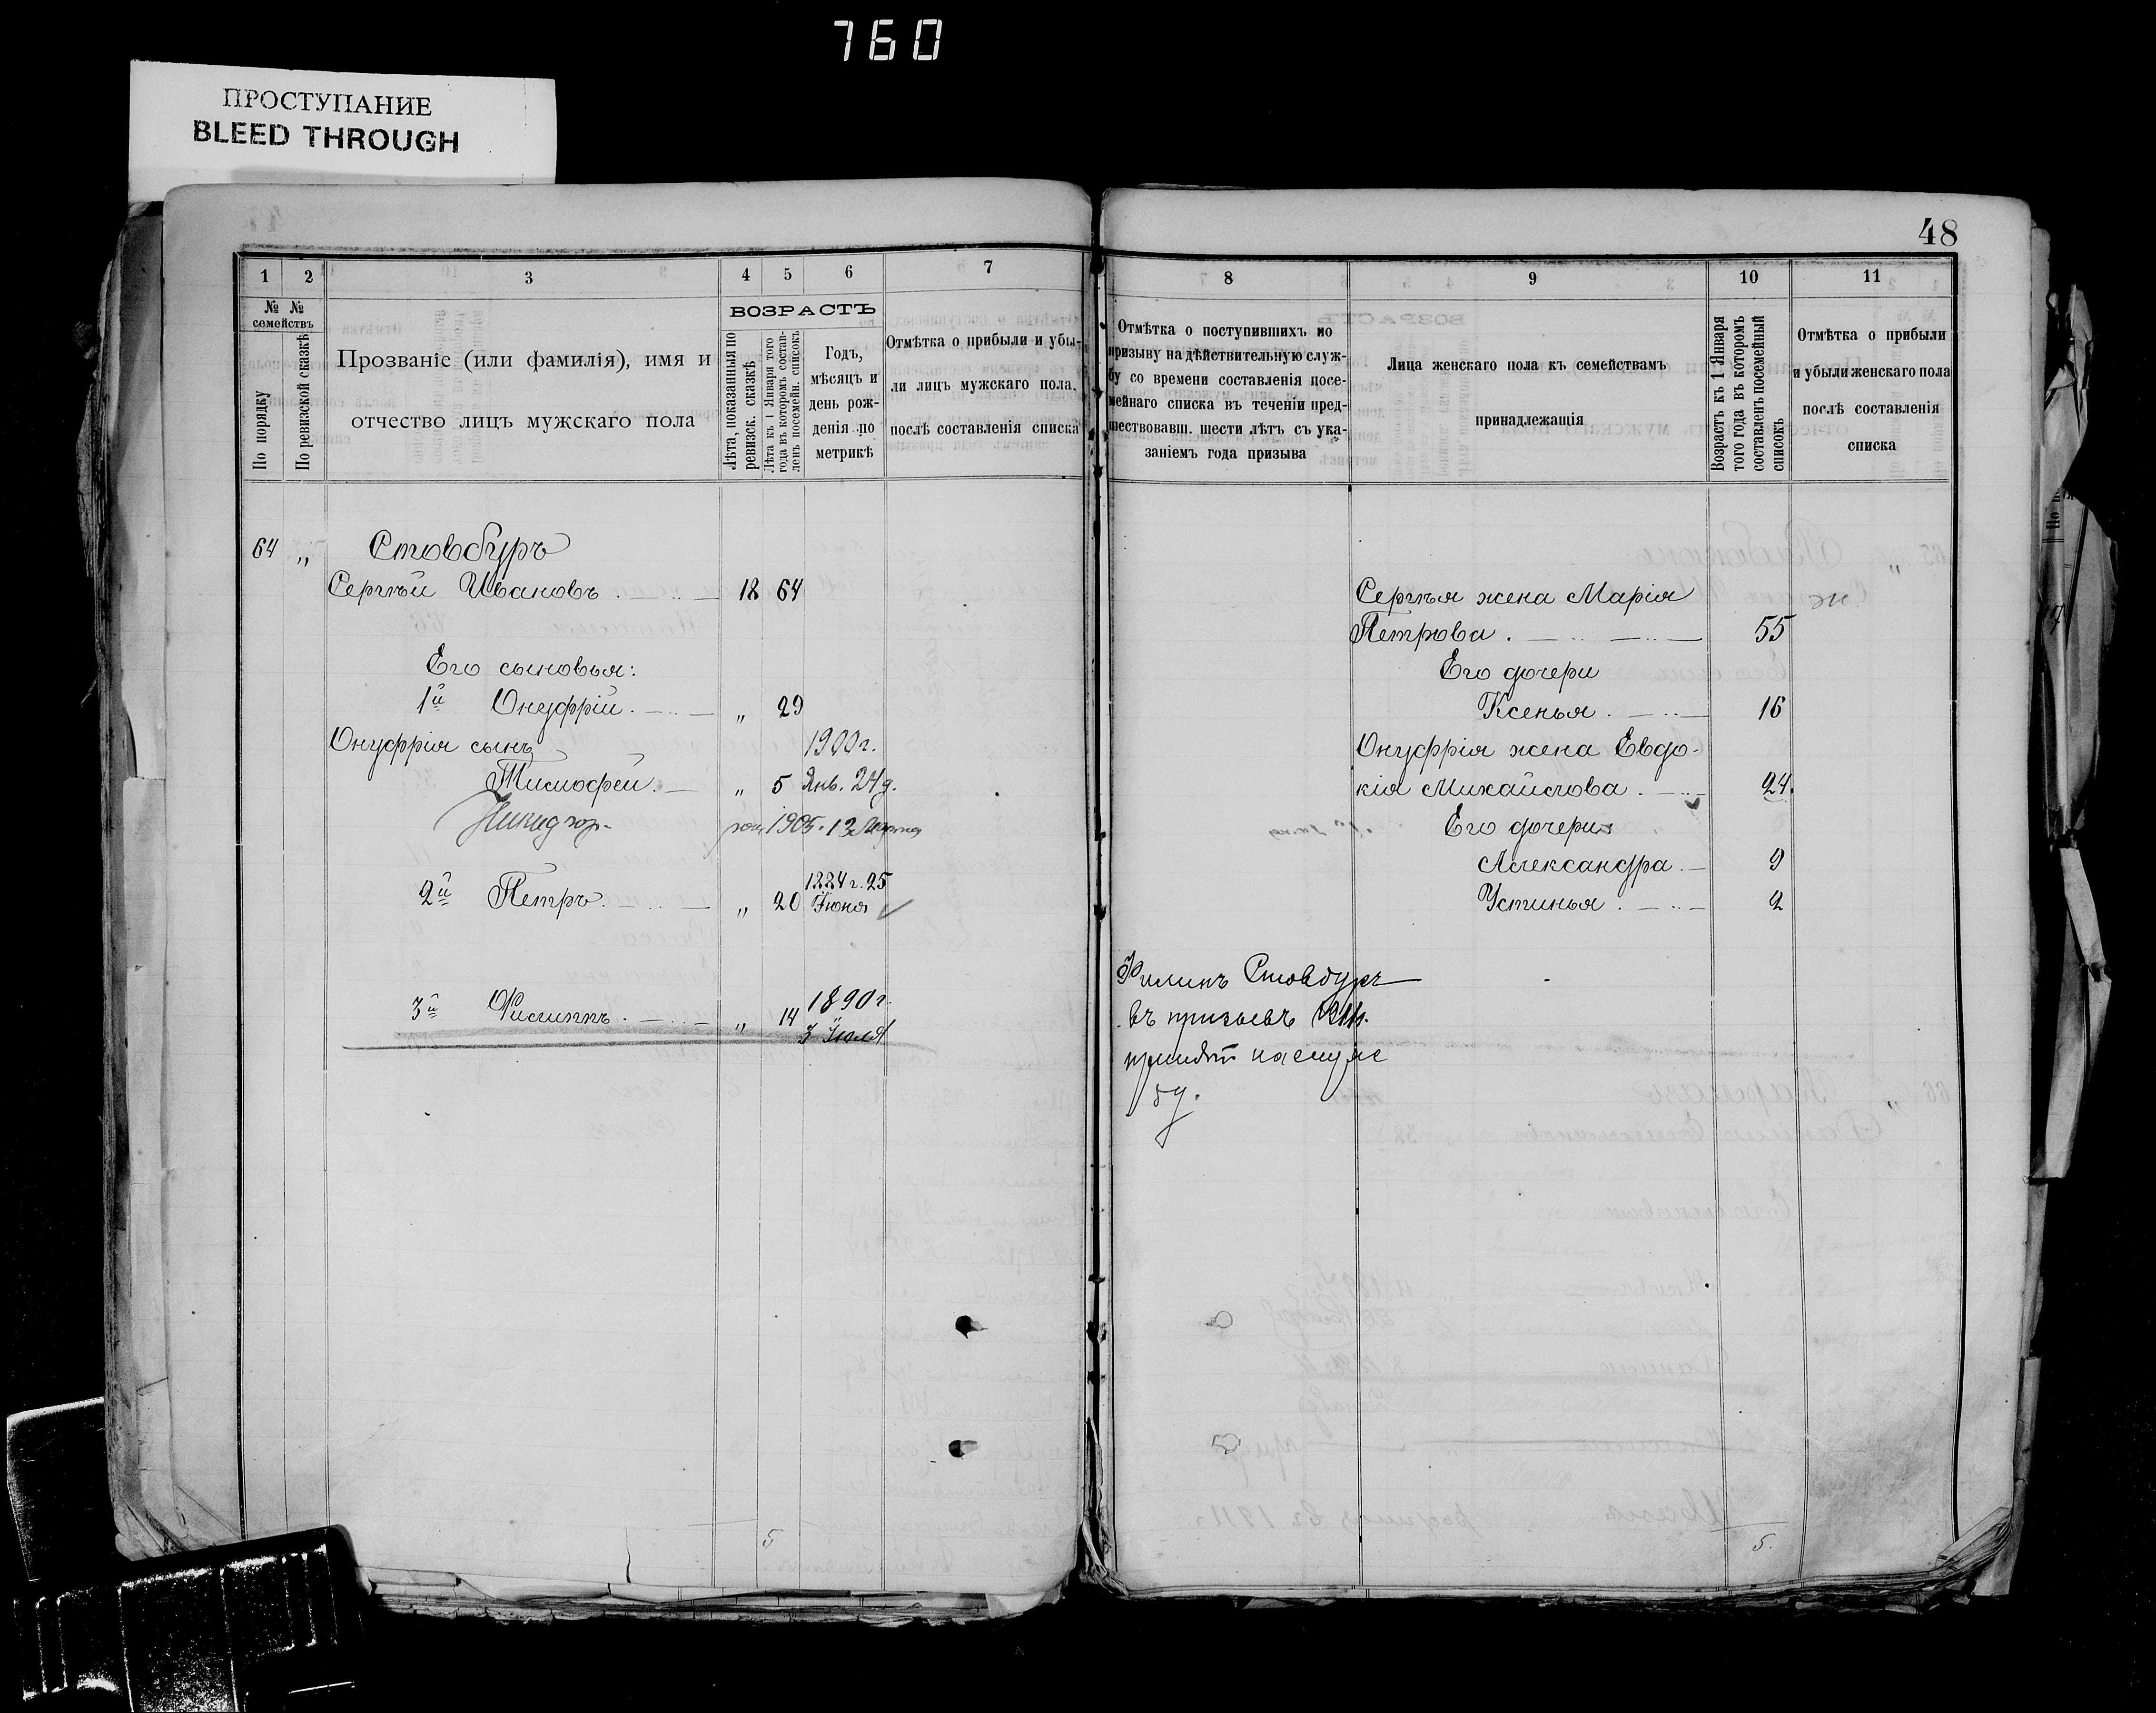 760
ПРОСТУПАНИЕ
BLEED THROUGH
48
1 2 3 4 5 6 7
№ № семействъ
По порядку
По ревизской сказкѣ
Прозваніе (или фамилія), имя и
отчество лицъ мужскаго пола
ВОЗРАСТЪ
Лѣта, показанныя по
ревизск. сказкѣ
Лѣта къ 1 Января того
года въ которомъ состав-
ленъ посемейн. списокъ
Годъ,
мѣсяцъ и
день рож-
денія по
метрикѣ
Отмѣтка о прибыли и убы-
ли лицъ мужскаго пола,
послѣ составленія списка
64 „ Стовбуръ
Сергѣй Ивановъ . 18 64
Его сыновья:
1й Онуфрій . „ 29
Онуфрія сынъ 1900 г.
Тимофей . „ 5 Янв. 24 д.
1905 . 12 Марта
2й Петръ . „ 20 1884 г. 25
Іюня
3й Филиппъ . „ 14 1890 г.
3 Іюля
5
8 9 10 11
Отмѣтка о поступившихъ по
призыву на дѣйствительную служ-
бу со времени составленія посе-
мейнаго списка въ теченіи пред-
шествовавш. шести лѣтъ съ ука-
заніемъ года призыва
Лица женскаго пола къ семействамъ
принадлежащія
Возрастъ къ 1 Января
того года въ которомъ
составленъ посемейный
списокъ
Отмѣтка о прибыли
и убыли женскаго пола
послѣ составленія
списка
Сергѣя жена Марія
Петрова . 55
Его дочери
Ксенья . 16
Онуфрія жена Евдо-
кія Михайлова . 24
Его дочери
Александра . 9
Устинья . 2
Филипъ Стовбуръ
въ призывъ 1911 г.
принятъ на служ
бу.
5.